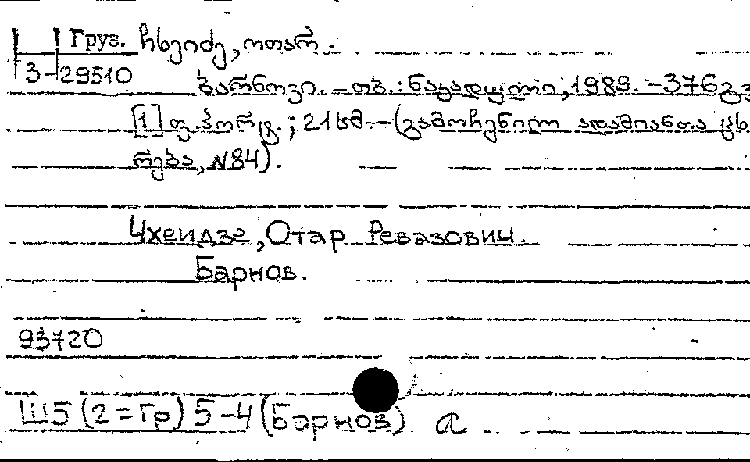 Груз. ჩხეიძე, ოთარ.
3-29510
ბარნოვი. - თბ.: ნაკადული, 1989. - 376 გვ
[1] ფ. პორტრ.; 21 სმ. - (გამოჩენილ ადამიანთა ცხ
რება, N84).
Чхеидзе, Отар Ревазович.
Барнов.
93720
Ш5(2=Гр)5-4(Барнов) а